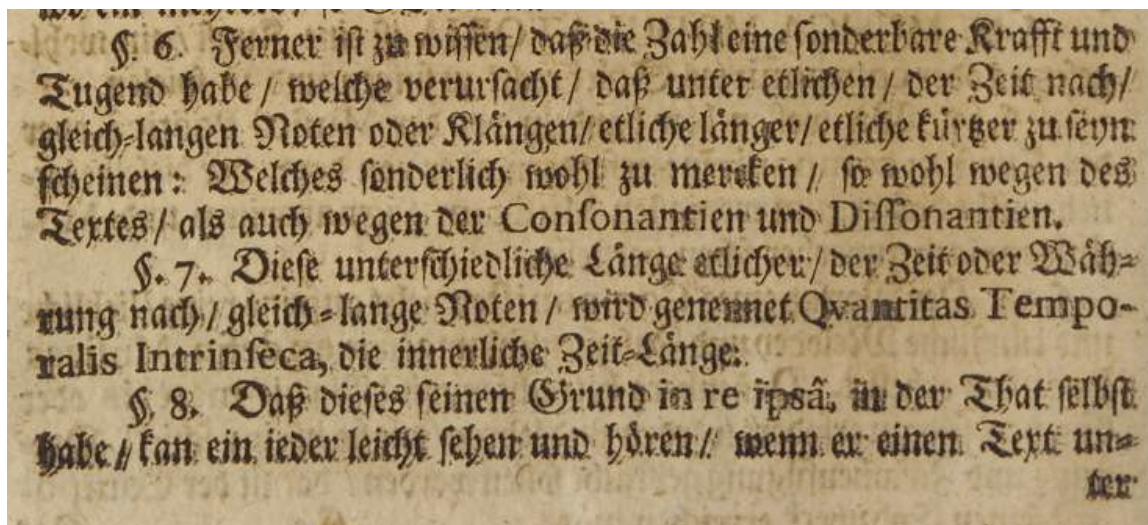 §. 6. Ferner ist zu wissen/ daß die Zahl eine sonderbare Krafft und
Tugend habe / welche verursacht / daß unter etlichen / der Zeit nach/
gleich-langen Noten oder Klängen/ etliche länger/ etliche kürtzer zu seyn
scheinen: Welches sonderlich wohl zu mercken / so wohl wegen des
Textes/ als auch wegen der Consonantien und Dissonantien.
§. 7. Diese unterschiedliche Länge etlicher/ der Zeit oder Wäh-
rung nach/ gleich-lange Noten / wird genennet Qvantitas Tempo-
ralis Intrinseca, die innerliche Zeit-Länge.
§. 8. Daß dieses seinen Grund in re ipsâ, in der That selbst
habe / kan ein ieder leicht sehen und hören/ wenn er einen Text un-
ter